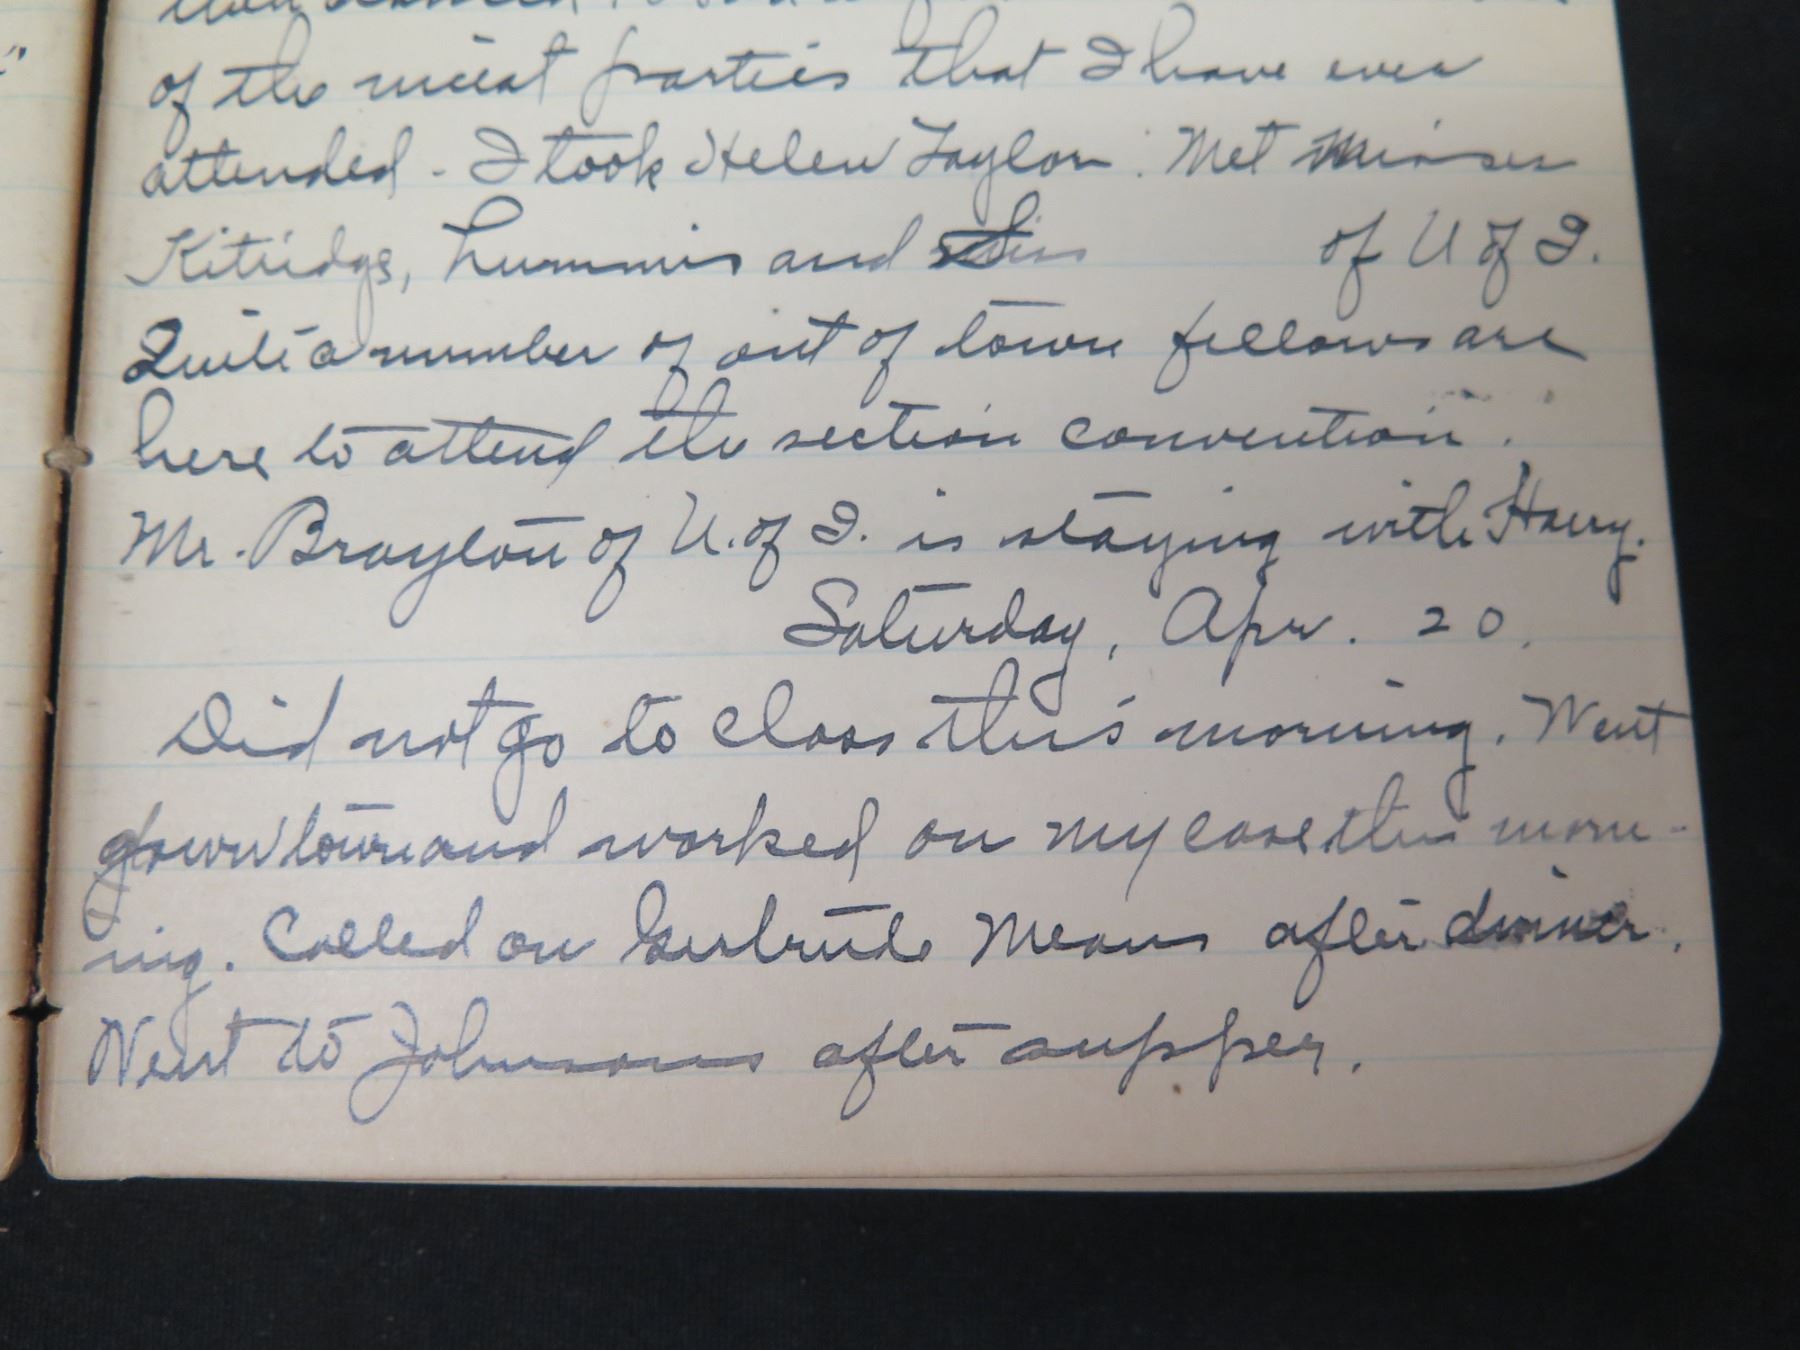 of the nicest parties that I have ever
attended - I took Helen Taylor. Met Misses
Kitridge, Lummis and Sims of U of I.
Quite a number of out of town fellows are
here to attend the section convention.
Mr. Brayton of U. of I. is staying with Harry.
Saturday, Apr. 20.
Did not go to class this morning. Went
down town and worked on my case this morn-
ing. Called on Gertrude Means after dinner.
Went to Johnsons after supper.